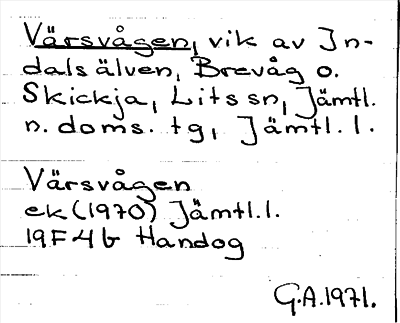 Värsvågen, vik av In-
dalsälven, Brevåg o.
Skickja, Lits sn, Jämtl.
n. doms. tg, Jämtl. l.
Värsvågen
ek (1970) Jämtl. l.
19F4b Handog
G.A. 1971.